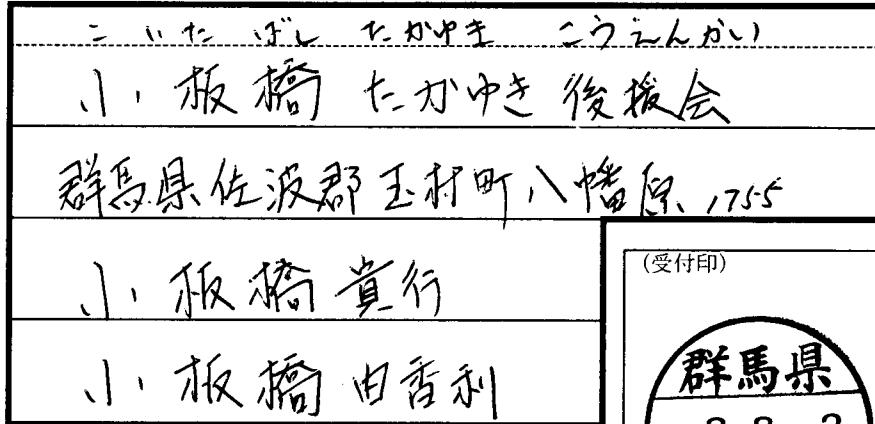 こいたばし たかゆき こうえんかい
小板橋 たかゆき 後援会
群馬県佐波郡玉村町八幡原1755
小板橋 貴行
小板橋 由香利
(受付印)
群馬県